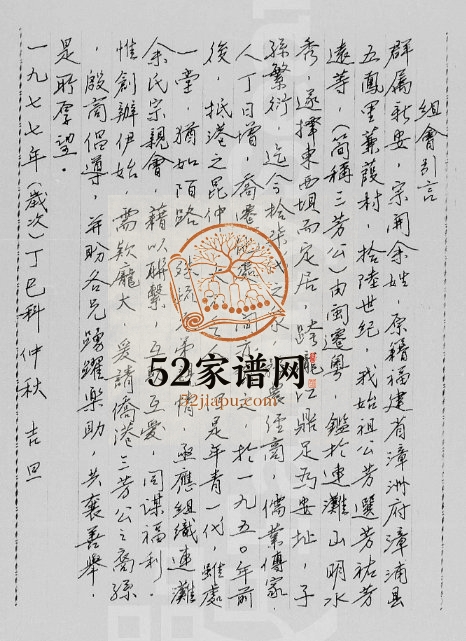 組會引言
群属新安，宗開余姓，原籍福建省漳洲府漳浦县
五鳳里蒹葭村，拾陸世紀，我始祖公芳選芳祐芳
遠等，（简稱三芳公）由闽遷粤，鑑於連灘山明水
秀，遂擇東西垻而定居，跨龍江鼎足為安址，子
孫繁衍，迄今拾柒代之 經商，儒業傳家，
人丁日增，喬遷 於一九五〇年前
後，抵港之昆仲， 是年青一代，雖處
一堂，猶如陌路， 亟應組織連灘
余氏宗親會，藉以聯繫，互 互愛，同谋福利。
惟創辦伊始，需欵龐大，爰請僑港三芳公之裔孫
，殷商倡導，并盼各兄踴躍樂助，共襄善舉，
是所厚望。
一九七七年（歲次）丁巳科仲秋 吉旦
52家谱网
52jiapu.com